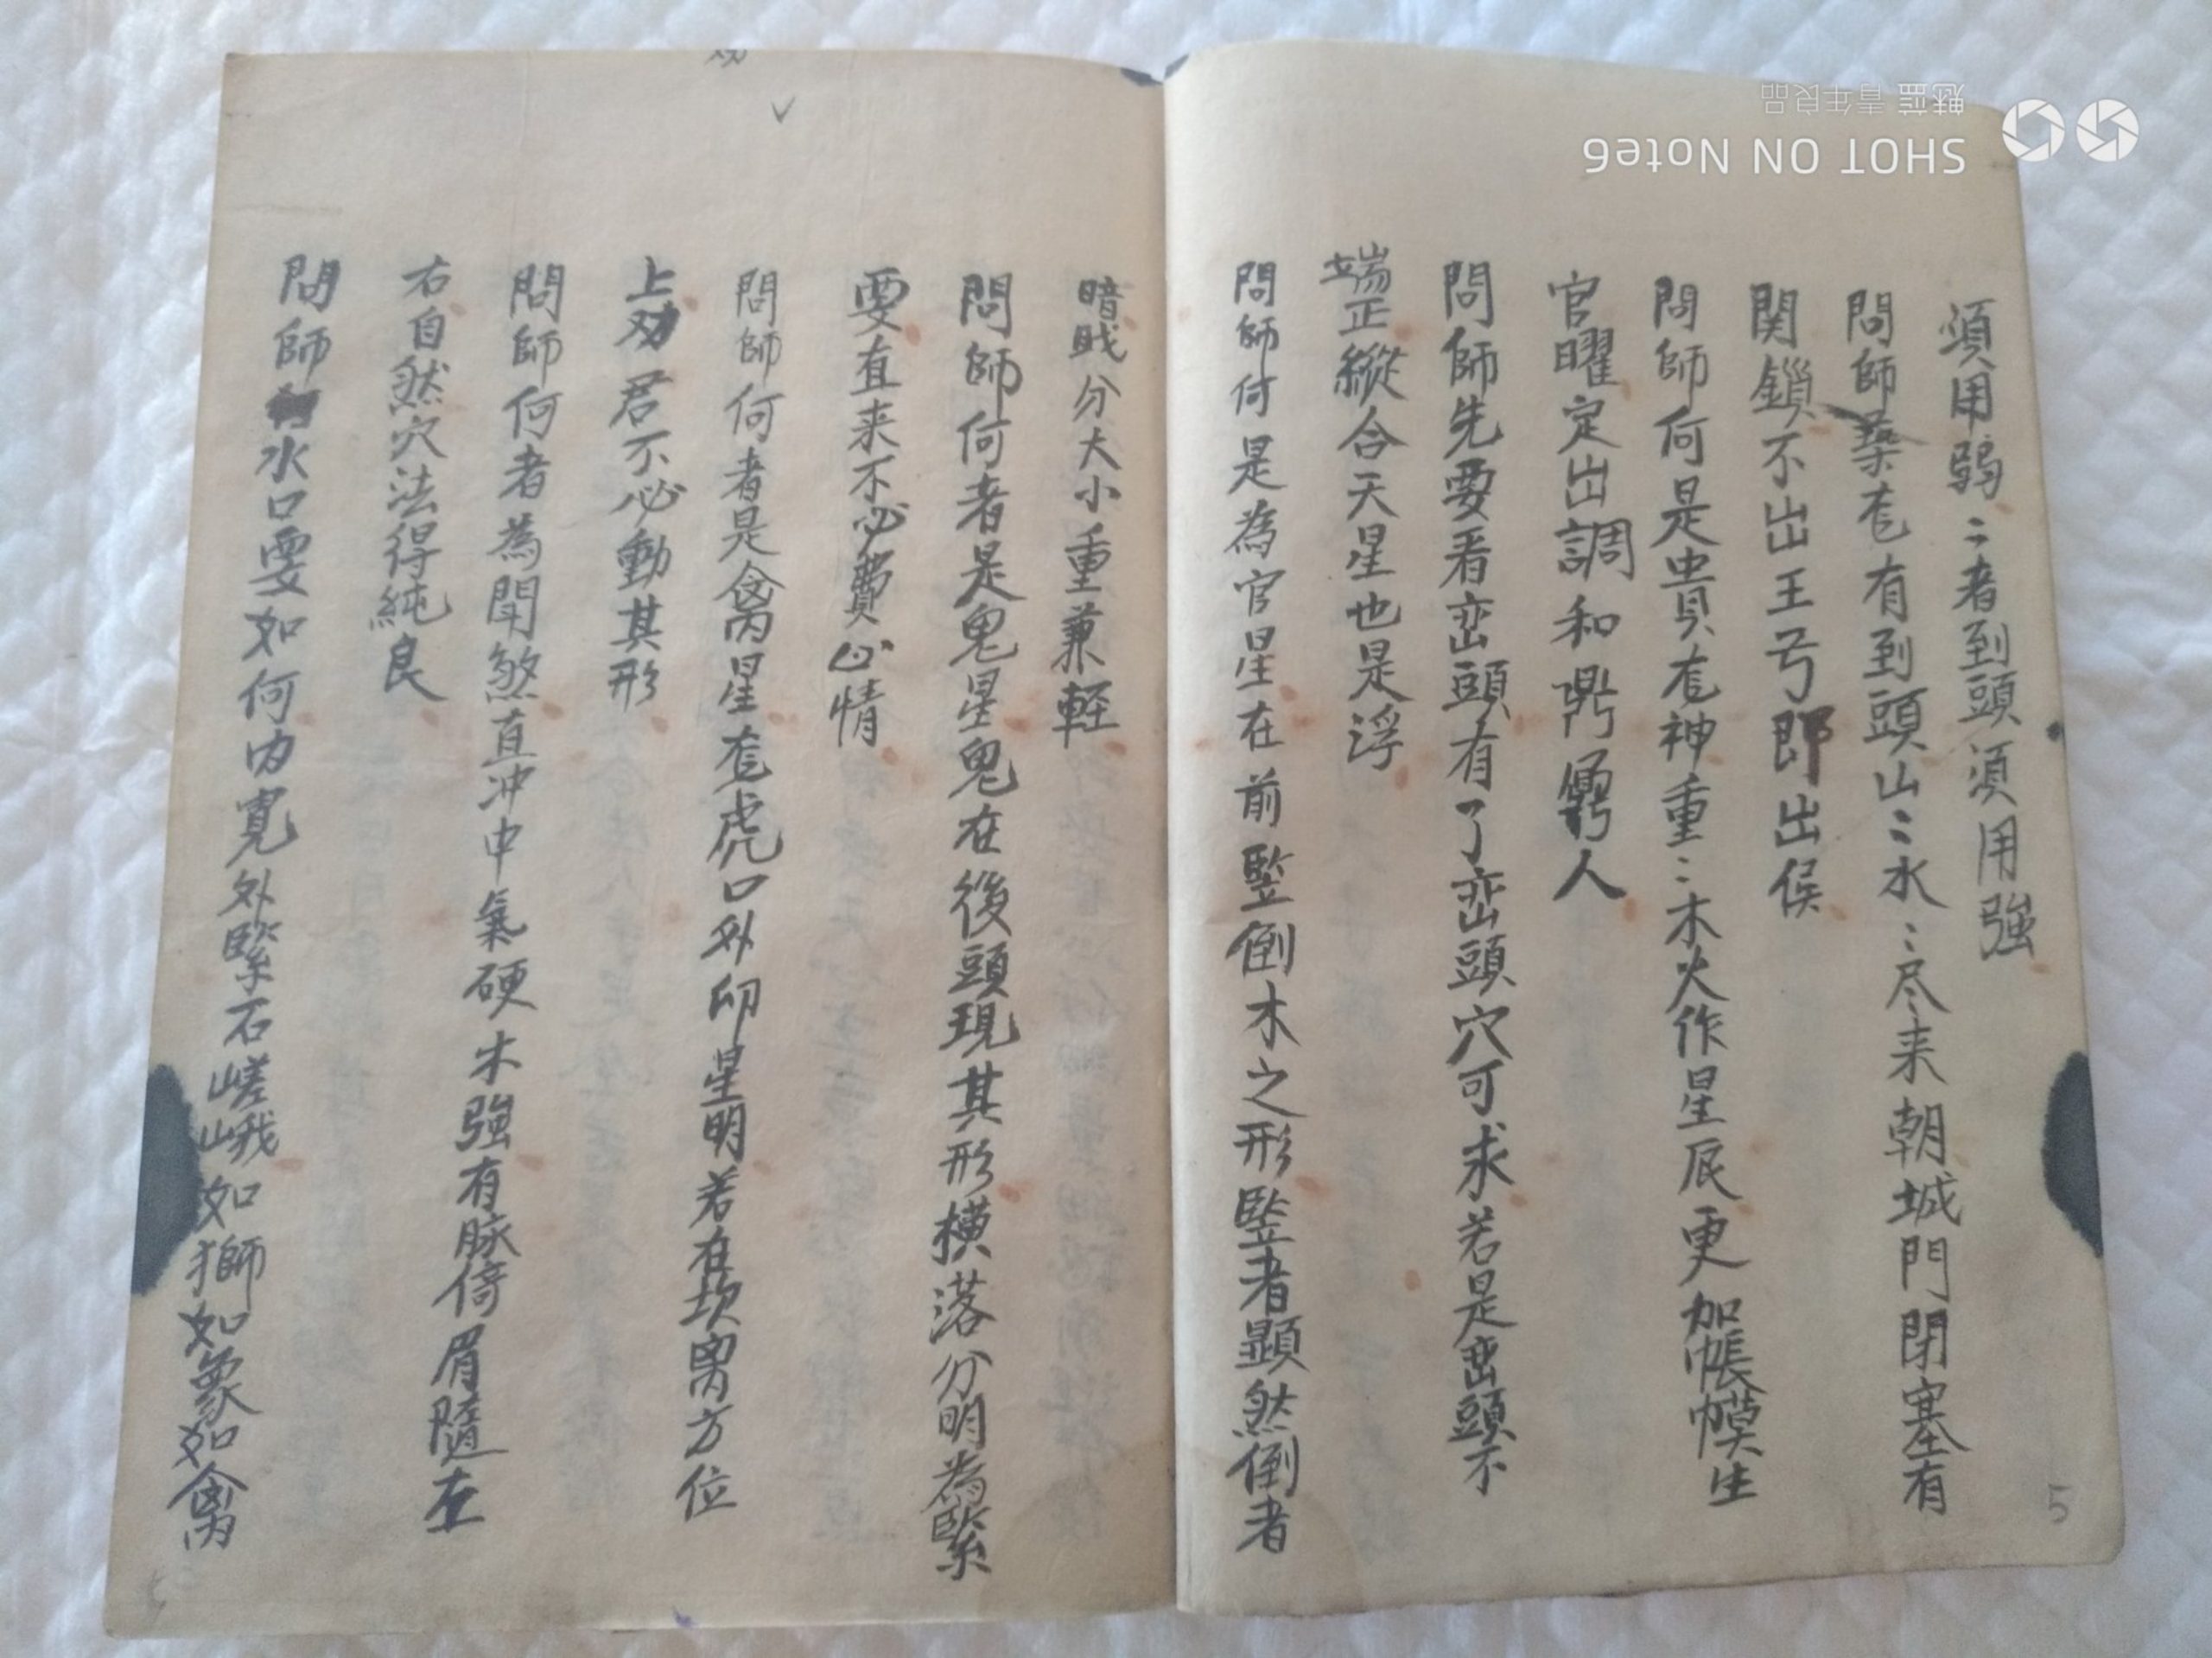 須用弱〻者到頭須用強
問師葬㐌有到頭山〻水〻尽来朝城門閉塞有
関鎖不出王号即出侯
問師何是貴㐌神重〻木火作星辰更加帳幙生
官曜定出調和鼎鼐人
問師先要看峦頭有了峦頭穴可求若是峦頭不
端正縱合天星也是浮
問師何是為官星在前竪倒木之形竪者顕然倒者
暗戝分大小重兼輕
問師何者是鬼星鬼在後頭現其形横落分明為緊
要直来不必費心情
問師何者是禽星㐌虎口外印星明若在坎离方位
上劝君不必動其形
問師何者為閗煞直冲中氣硬木強有脉倚眉隨左
右自然穴法得純良
問師水口要如何内寛外緊石嵯峨如獅如象如禽
5
SHOT ON Note6
魅蓝 青年良品